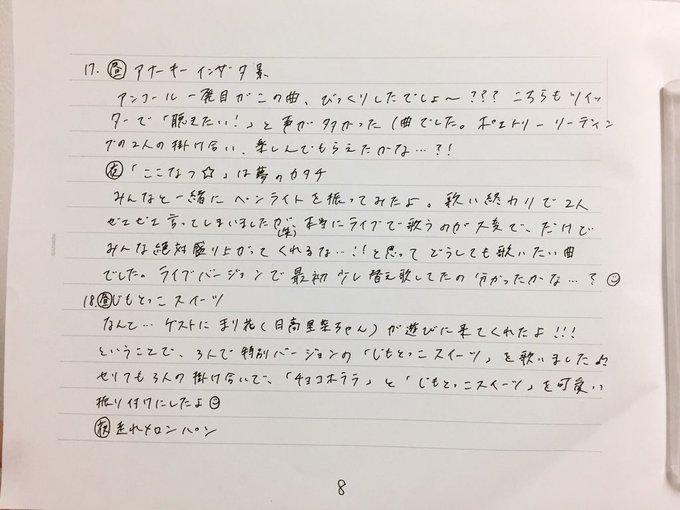 17. 昼 アナーキーインザ夕景
アンコール一発目がこの曲、びっくりしたでしょ〜???こちらもツイッ
ターで「聴きたい!」と声が多かった1曲でした。ポエトリーリーディン
グの2人の掛け合い、楽しんでもらえたかな…?!
夜「ここなつ☆」は夢のカタチ
みんなと一緒にペンライトを振ってみたよ。歌い終わりで2人
ゼエゼエ言ってしまいましたが(笑)、本当にライブで歌うのが大変で、だけど
みんな絶対盛り上がってくれるな…!!と思ってどうしても歌いたい曲
でした。ライブバージョンで最初少し替え歌してたの分かったかな…?
18.昼じもとっこスイーツ
なんと…ゲストにまり花(日高里菜ちゃん)が遊びに来てくれたよ!!!
ということで、3人で特別バージョンの「じもとっこスイーツ」を歌いました♪
セリフも3人の掛け合いで、「チョコホララ」と「じもとっこスイーツ」を可愛い
振り付けにしたよ
夜走れメロンパン
8